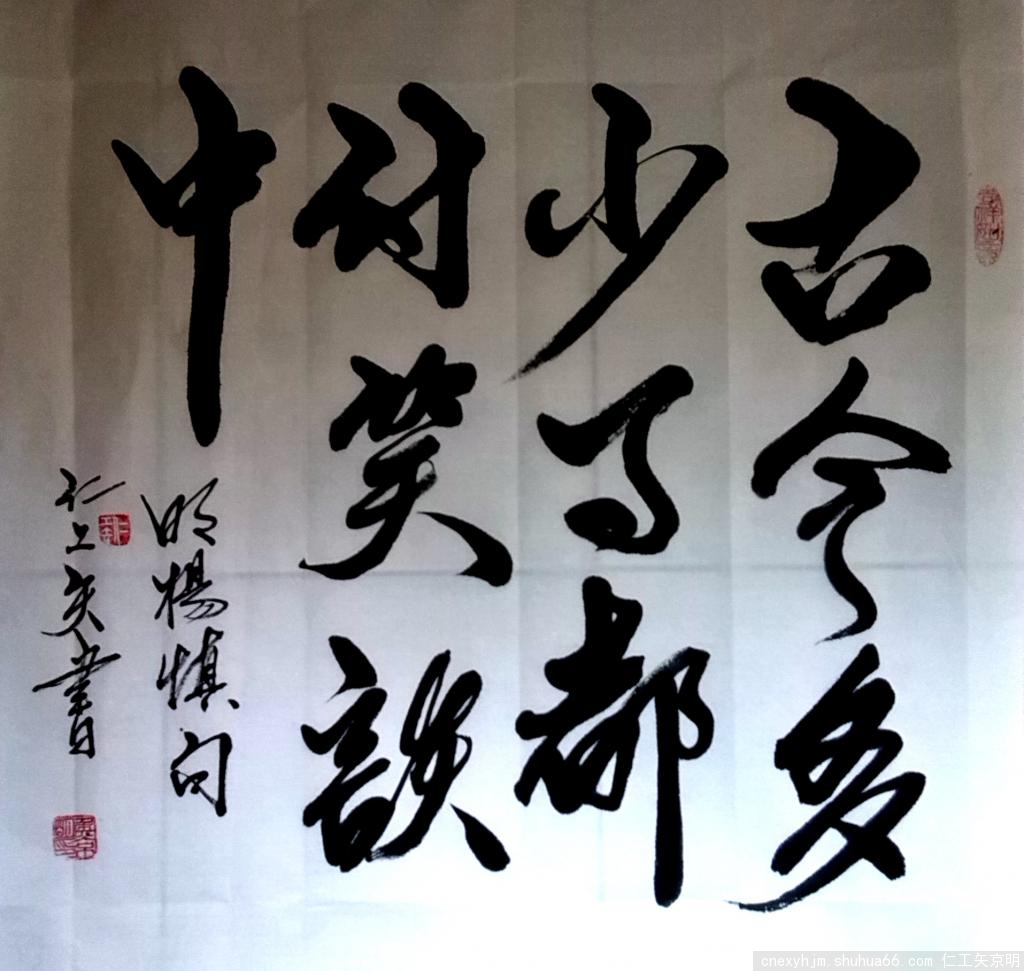 古今多
少事都
付笑談
中
明楊慎句
仁工矢書
cnexyhjm.shuhua66.com 仁工矢京明